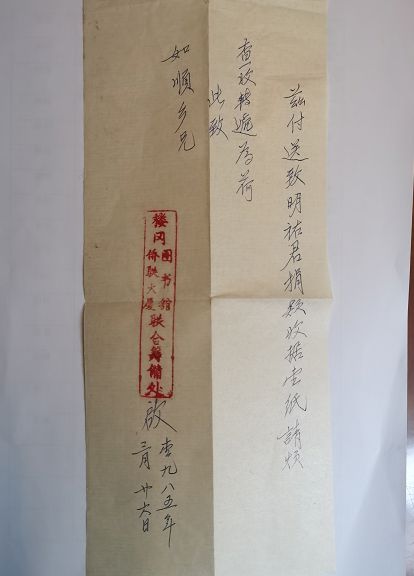 茲付送致明祜君捐款收据壹纸請烦
查收转遞为荷
此致
如順乡兄
楼冈
图书馆
侨联大厦
联合籌備处
啟
壹九八五年
三月廿六日